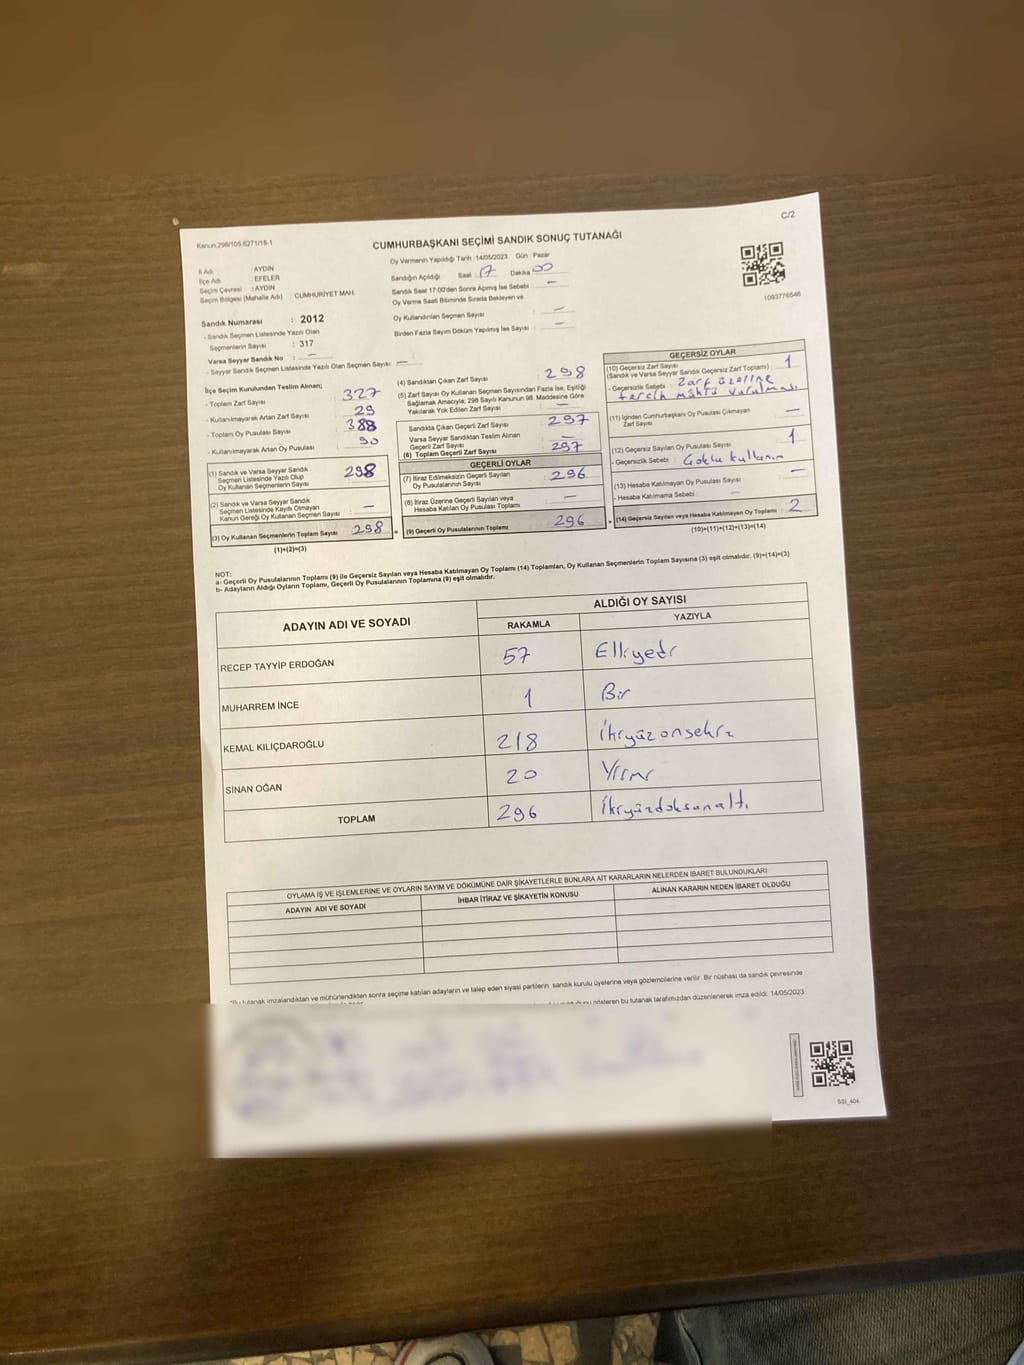 C/2
Kanun:298/105.6271/16-1
CUMHURBAŞKANI SEÇİMİ SANDIK SONUÇ TUTANAĞI
İl Adı : AYDIN
İlçe Adı : EFELER
Seçim Çevresi : AYDIN
Seçim Bölgesi (Mahalle Adı) : CUMHURİYET MAH.
Oy Vermenin Yapıldığı Tarih :14/05/2023 Gün : Pazar
Sandığın Açıldığı Saat : 17 Dakika 00
Sandık Saat 17:00'den Sonra Açılmış İse Sebebi : —
Oy Verme Saati Bitiminde Sırada Bekleyen ve
Oy Kullandırılan Seçmen Sayısı : —
Birden Fazla Sayım Döküm Yapılmış İse Sayısı : —
1093776546
Sandık Numarası : 2012
- Sandık Seçmen Listesinde Yazılı Olan
Seçmenlerin Sayısı : 317
Varsa Seyyar Sandık No : —
- Seyyar Sandık Seçmen Listesinde Yazılı Olan Seçmen Sayısı : —
İlçe Seçim Kurulundan Teslim Alınan;
- Toplam Zarf Sayısı 327
- Kullanılmayarak Artan Zarf Sayısı 29
- Toplam Oy Pusulası Sayısı 388
- Kullanılmayarak Artan Oy Pusulası 90
(1) Sandık ve Varsa Seyyar Sandık
Seçmen Listesinde Yazılı Olup
Oy Kullanan Seçmenlerin Sayısı 298
(2) Sandık ve Varsa Seyyar Sandık
Seçmen Listesinde Kayıtlı Olmayan
Kanun Gereği Oy Kullanan Seçmen Sayısı —
(3) Oy Kullanan Seçmenlerin Toplam Sayısı 298
(1)+(2)=(3)
(4) Sandıktan Çıkan Zarf Sayısı 298
(5) Zarf Sayısı Oy Kullanan Seçmen Sayısından Fazla İse, Eşitliği
Sağlamak Amacıyla; 298 Sayılı Kanunun 98. Maddesine Göre
Yakılarak Yok Edilen Zarf Sayısı —
Sandıkta Çıkan Geçerli Zarf Sayısı 297
Varsa Seyyar Sandıktan Teslim Alınan
Geçerli Zarf Sayısı —
(6) Toplam Geçerli Zarf Sayısı 297
GEÇERLİ OYLAR
(7) İtiraz Edilmeksizin Geçerli Sayılan
Oy Pusulasının Sayısı 296
(8) İtiraz Üzerine Geçerli Sayılan veya
Hesaba Katılan Oy Pusulası Toplamı —
(9) Geçerli Oy Pusulalarının Toplamı 296
GEÇERSİZ OYLAR
(10) Geçersiz Zarf Sayısı
(Sandık ve Varsa Seyyar Sandık Geçersiz Zarf Toplamı) : 1
- Geçersizlik Sebebi : Zarf üzerine
tercih mührü vurulması
(11) İçinden Cumhurbaşkanı Oy Pusulası Çıkmayan
Zarf Sayısı —
(12) Geçersiz Sayılan Oy Pusulası Sayısı 1
- Geçersizlik Sebebi : Çoklu kullanım
(13) Hesaba Katılmayan Oy Pusulası Sayısı —
- Hesaba Katılmama Sebebi : —
(14) Geçersiz Sayılan veya Hesaba Katılmayan Oy Toplamı 2
(10)+(11)+(12)+(13)=(14)
NOT:
a- Geçerli Oy Pusulalarının Toplamı (9) ile Geçersiz Sayılan veya Hesaba Katılmayan Oy Toplamı (14) Toplamları, Oy Kullanan Seçmenlerin Toplam Sayısına (3) eşit olmalıdır. (9)+(14)=(3)
b- Adayların Aldığı Oyların Toplamı, Geçerli Oy Pusulalarının Toplamına (9) eşit olmalıdır.
ADAYIN ADI VE SOYADI ALDIĞI OY SAYISI
RAKAMLA YAZIYLA
RECEP TAYYİP ERDOĞAN 57 Elliyedi
MUHARREM İNCE 1 Bir
KEMAL KILIÇDAROĞLU 218 İkiyüzonsekiz
SİNAN OĞAN 20 Yirmi
TOPLAM 296 İkiyüzdoksanaltı
OYLAMA İŞ VE İŞLEMLERİNE VE OYLARIN SAYIM VE DÖKÜMÜNE DAİR ŞİKAYETLERLE BUNLARA AİT KARARLARIN NELERDEN İBARET BULUNDUKLARI
ADAYIN ADI VE SOYADI İHBAR İTİRAZ VE ŞİKAYETİN KONUSU ALINAN KARARIN NEDEN İBARET OLDUĞU
*Bu tutanak imzalandıktan ve mühürlendikten sonra seçime katılan adayların ve talep eden siyasi partilerin sandık kurulu üyelerine veya gözlemcilerine verilir. Bir nüshası da sandık çevresinde
gösteren bu tutanak tarafımızdan düzenlenerek imza edildi. 14/05/2023
SSI_404